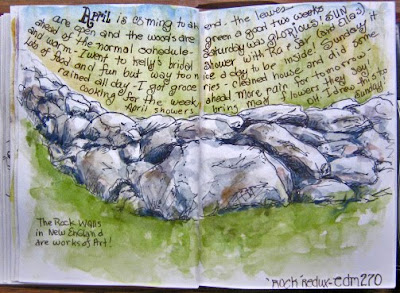 April is coming to an end - the leaves
are open and the woods are green a good two weeks
ahead of the normal schedule - Saturday was GLORIOUS! SUN
and warm - I went to Kelly's bridal shower with
lots of food and fun but way too nice a day to be inside! Sunday it
rained all day - I got groceries - cleaned house and did some
cooking for the week ahead. More rain for tomorrow!
April showers bring may flowers they say!
I drew this Sunday!
The Rock Walls
in New England
are works of Art!
"Rock" Redux - edm 270